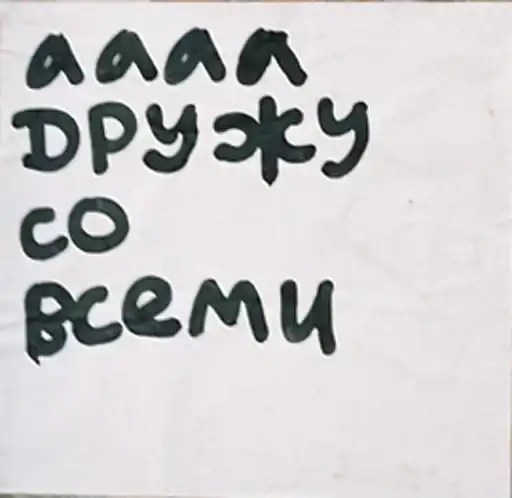 аааа
Dружу
со
всеми